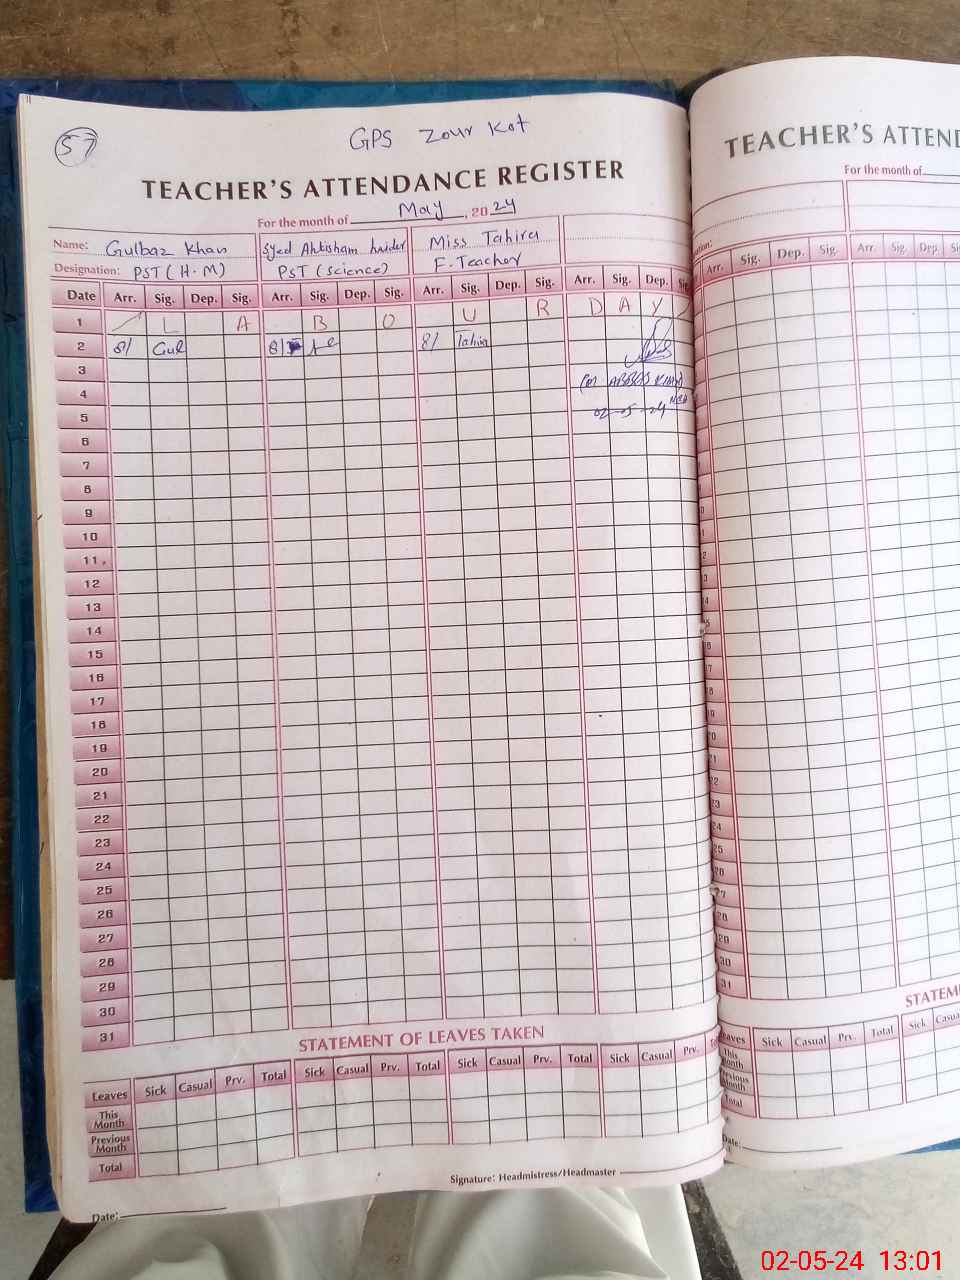 57
GPS Zour Kot
TEACHER'S ATTENDANCE REGISTER
For the month of May, 2024
Name: Gulbaz Khan Syed Ahtisham haider Miss Tahira
Designation: PST (H.M) PST (science) F. Teacher
Date Arr. Sig. Dep. Sig. Arr. Sig. Dep. Sig. Arr. Sig. Dep. Sig. Arr. Sig. Dep.
1 L A B O U R D A Y
2 8/ Gul 8/ 8/ Tahira
3
4 ABBAS KHAN
5 02-05-24
6
7
8
9
10
11
12
13
14
15
16
17
18
19
20
21
22
23
24
25
26
27
28
29
30
31
STATEMENT OF LEAVES TAKEN
Leaves Sick Casual Prv. Total Sick Casual Prv. Total Sick Casual Prv. Total Sick Casual Prv.
This Month
Previous Month
Total
Signature: Headmistress/Headmaster
Date:
TEACHER'S ATTEND
For the month of
Arr. Sig. Dep. Sig. Arr. Sig. Dep. Sig.
STATEM
Sick Casual Prv. Total Sick
Date:
02-05-24 13:01